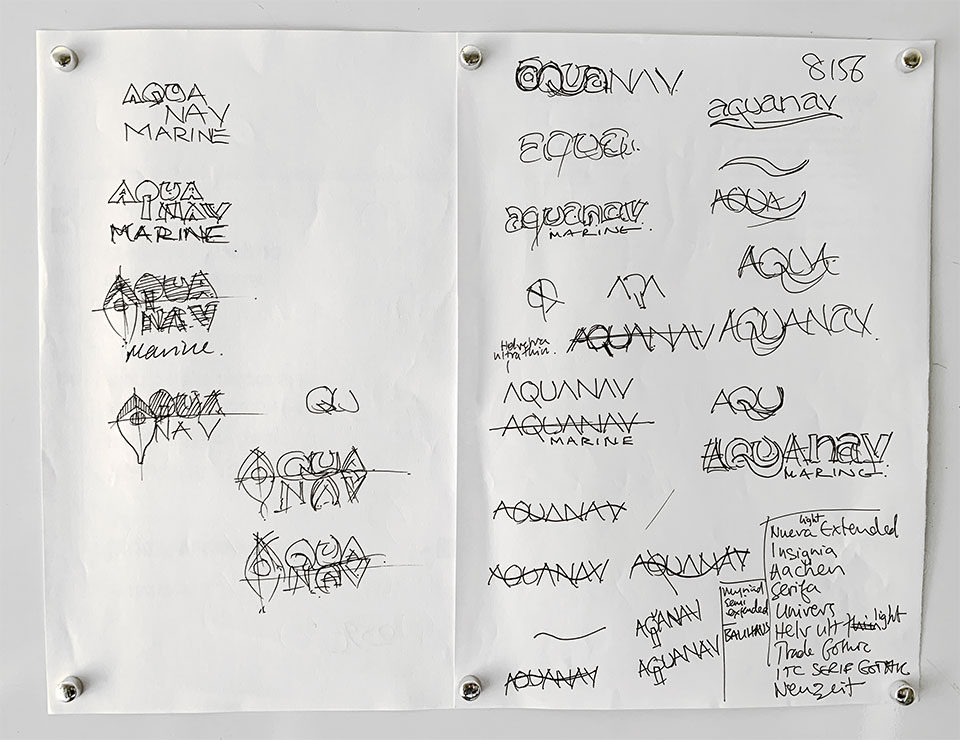 AQUA
NAV
MARINE
AQUA
NAV
MARINE
AQUA
NAV
Marine
AQUA
NAV
QU
AQUA
NAV
AQUA
NAV
aquaNAV
8156
aquanav
aqua
AQUA
aquanav
MARINE
AQUA
Helvetica
ultra thin
AQUANAV
AQUANAV
AQUANAV
AQUANAV
MARINE
AQU
AQUAnav
MARINE
AQUANAV
AQUANAV
AQUANAV
AQUANAV
AQUANAV
AQUANAV
myriad
semi
extended
BAUHAUS
light
Nueva Extended
Insignia
Aachen
Serifa
Univers
Helv ult thin light
Trade Gothic
ITC SERIF GOTHIC
Neuzeit